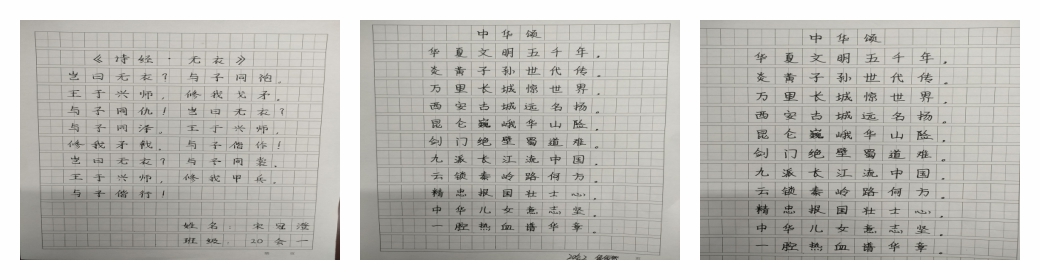 《诗经·无衣》
岂曰无衣？与子同袍。
王于兴师，修我戈矛。
与子同仇！岂曰无衣？
与子同泽。王于兴师，
修我矛戟。与子偕作！
岂曰无衣？与子同裳。
王于兴师，修我甲兵。
与子偕行！
姓名：宋冠澄
班级：20会一
中华颂
华夏文明五千年。
炎黄子孙世代传。
万里长城惊世界。
西安古城远名扬。
昆仑巍峨华山险。
剑门绝壁蜀道难。
九派长江流中国。
云锁秦岭路何方。
精忠报国壮士心。
中华儿女意志坚。
一腔热血谱华章。
中华颂
华夏文明五千年。
炎黄子孙世代传。
万里长城惊世界。
西安古城远名扬。
昆仑巍峨华山险。
剑门绝壁蜀道难。
九派长江流中国。
云锁秦岭路何方。
精忠报国壮士心。
中华儿女意志坚。
一腔热血谱华章。